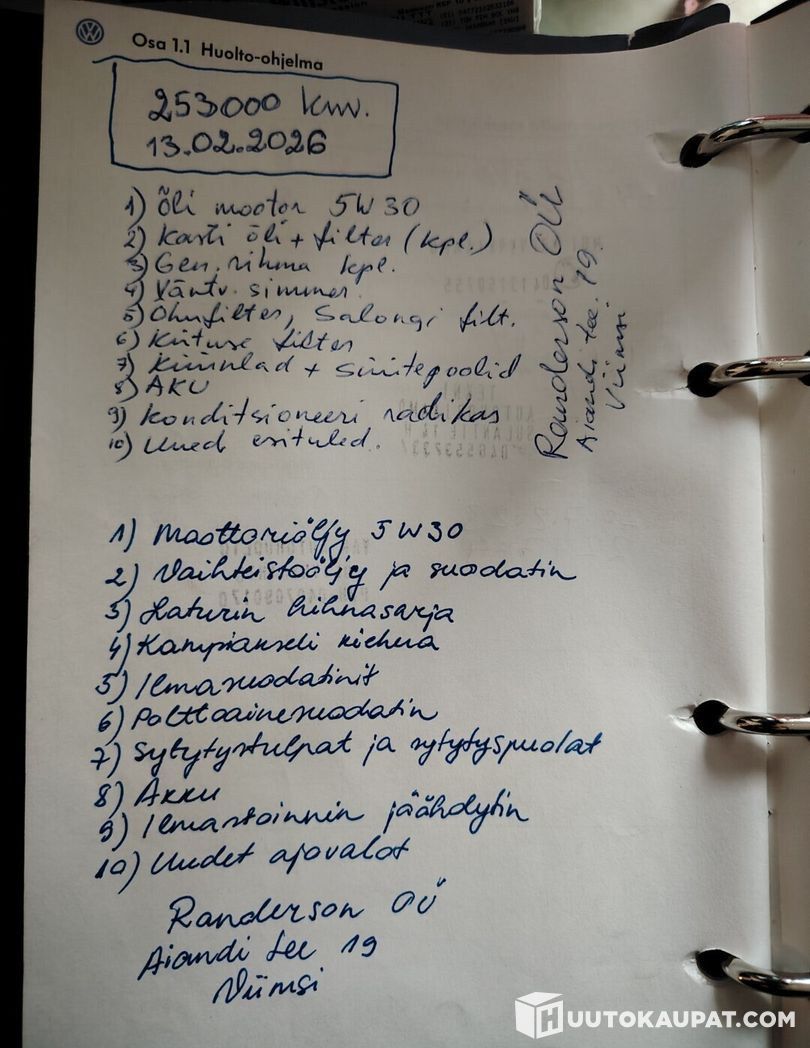 Osa 1.1 Huolto-ohjelma
253000 km.
13.02.2026
1) Õli mootor 5W30
2) Kasti õli + filter (kpl.)
3) Gen. rihma kpl.
4) Väntv. simmer.
5) Õhufilter, Salongi filt.
6) Kütuse filter
7) Küünlad + süütepoolid
8) AKU
9) Konditsioneeri radikas
10) Uued esituled.
Randerson OÜ
Aiandi tee. 19.
Viimsi
1) Moottoriöljy 5W30
2) Vaihteistoöljy ja suodatin
3) Laturin hihnasarja
4) Kampiakseli
5) Ilmasuodatinit
6) Polttoainesuodatin
7) Sytytystulpat ja sytytyspuolat
8) Akku
9) Ilmastoinnin jäähdytin
10) Uudet ajovalot
Randerson OÜ
Aiandi tee 19
Viimsi
HUUTOKAUPAT.COM